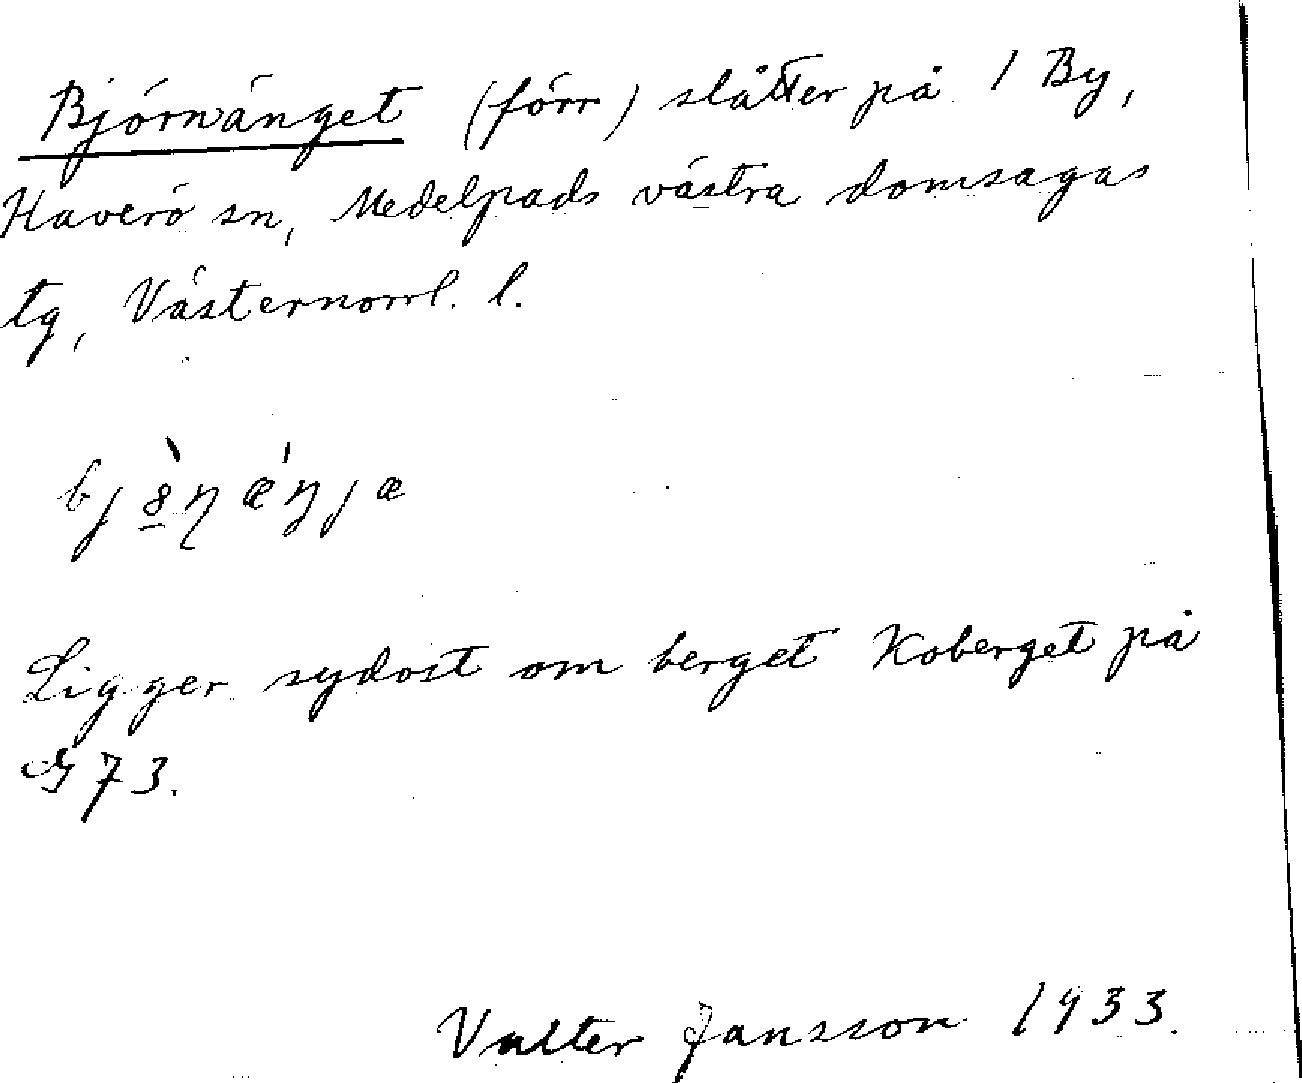 Björnänget (förr) slåtter på 1 By,
Haverö sn, Medelpads västra domsagas
tg, Västernorrl. l.
Ligger sydost om berget Koberget på
G 73.
Valter Jansson 1933.